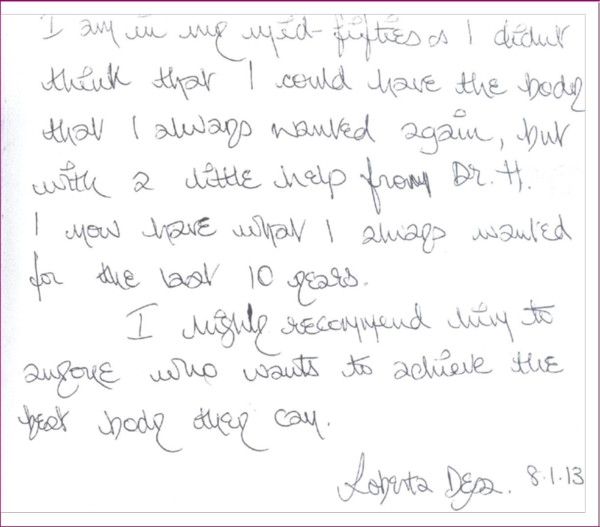 I am in my mid-fifties & I didnt
think that I could have the body
that I always wanted again, but
with a little help from Dr. H.
I now have what I always wanted
for the last 10 years.
I highly recommend him to
anyone who wants to achieve the
best body they can.
Roberta 8.1.13